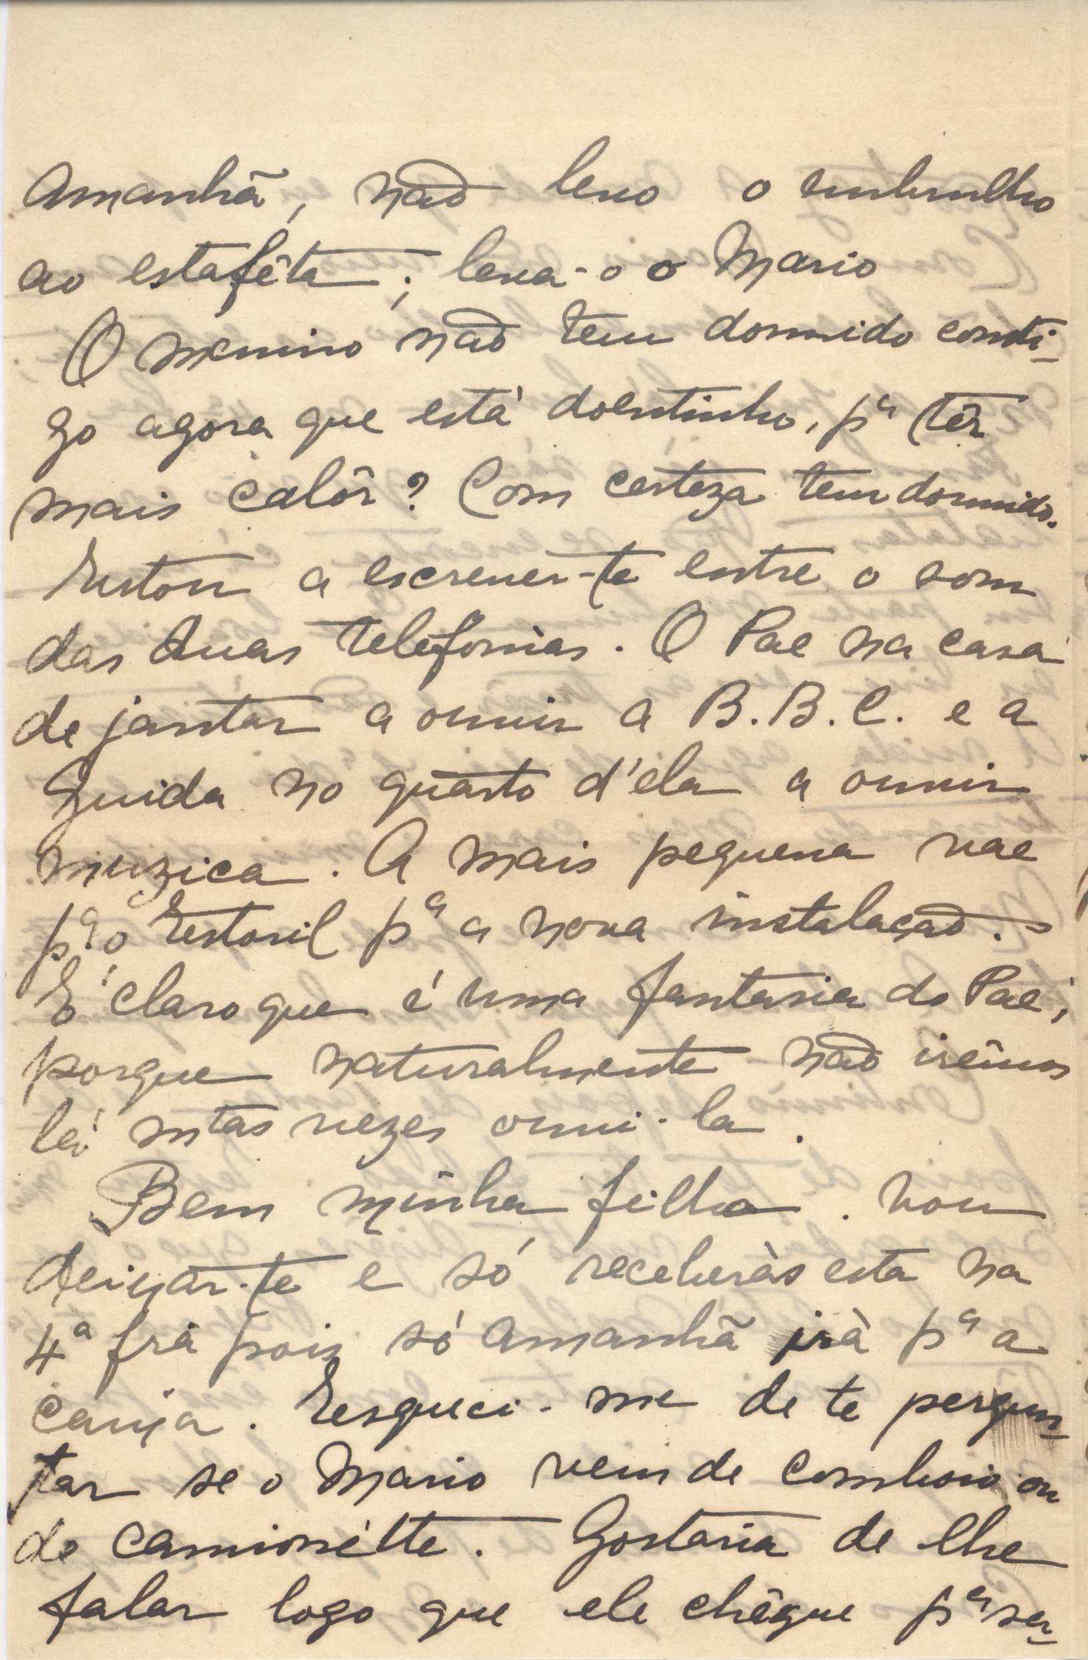 Amanhã, não levo o embrulho
ao estafêta; leva-o o Mario
O menino não tem dormido conti-
go agora que está doentinho, pª têr
mais calôr? Com certeza tem dormido.
Estou a escrever-te entre o som
das duas telefonias. O Pae na casa
de jantar a ouvir a B.B.C. e a
Guida no quarto d'ela a ouvir
muzica. A mais pequena vae
pª o Estoril pª a nova instalação. -
É claro que é uma fantasia do Pae;
porque naturalmente não irêmos
lá mtas vezes ouvi-la.
Bem minha filha. Vou
deixar-te e só receberàs esta na
4ª frª pois só amanhã irà pª a
caixa. Esqueci-me de te pergun-
tar se o Mario vem de comboio ou
de camionétte. Gostaria de lhe
falar logo que ele chêgue pª sa-